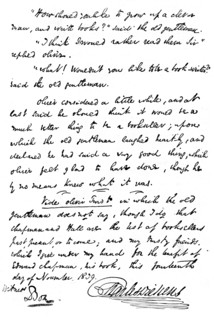 "How should you like to grow up a clever
man, and write books?" said the old gentleman.
"I think I would rather read them sir" re-
plied Oliver.
"What! Wouldn't you like to be a book-writer?"
said the old gentleman.
Oliver considered a little while, and at
last said he should think it would be a
much better thing to be a bookseller; upon
which the old gentleman laughed heartily, and
declared he had said a very good thing, which
Oliver felt glad to have done, though he
by no means knew what it was.
Vide Oliver Twist in which the old
gentleman does not say, though I do, that
Chapman and Hall are the best of booksellers
past, present, or to come; and my trusty friends.
which I give under my hand for the benefit of
Edward Chapman, his book, this fourteenth
day of November 1839.
Witness
Boz
Charles Dickens